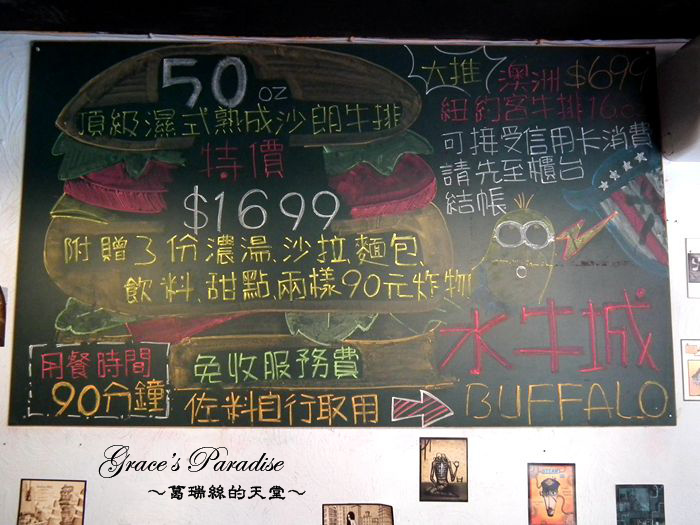 50 oz
頂級濕式熟成沙朗牛排
特價
$1699
附贈3份濃湯、沙拉、麵包、
飲料、甜點、兩樣90元炸物
用餐時間
90分鐘
免收服務費
佐料自行取用
大推
澳洲 $699
紐約客牛排16oz
可接受信用卡消費
請先至櫃台
結帳
水牛城
BUFFALO
Grace's Paradise
～葛瑞絲的天堂～